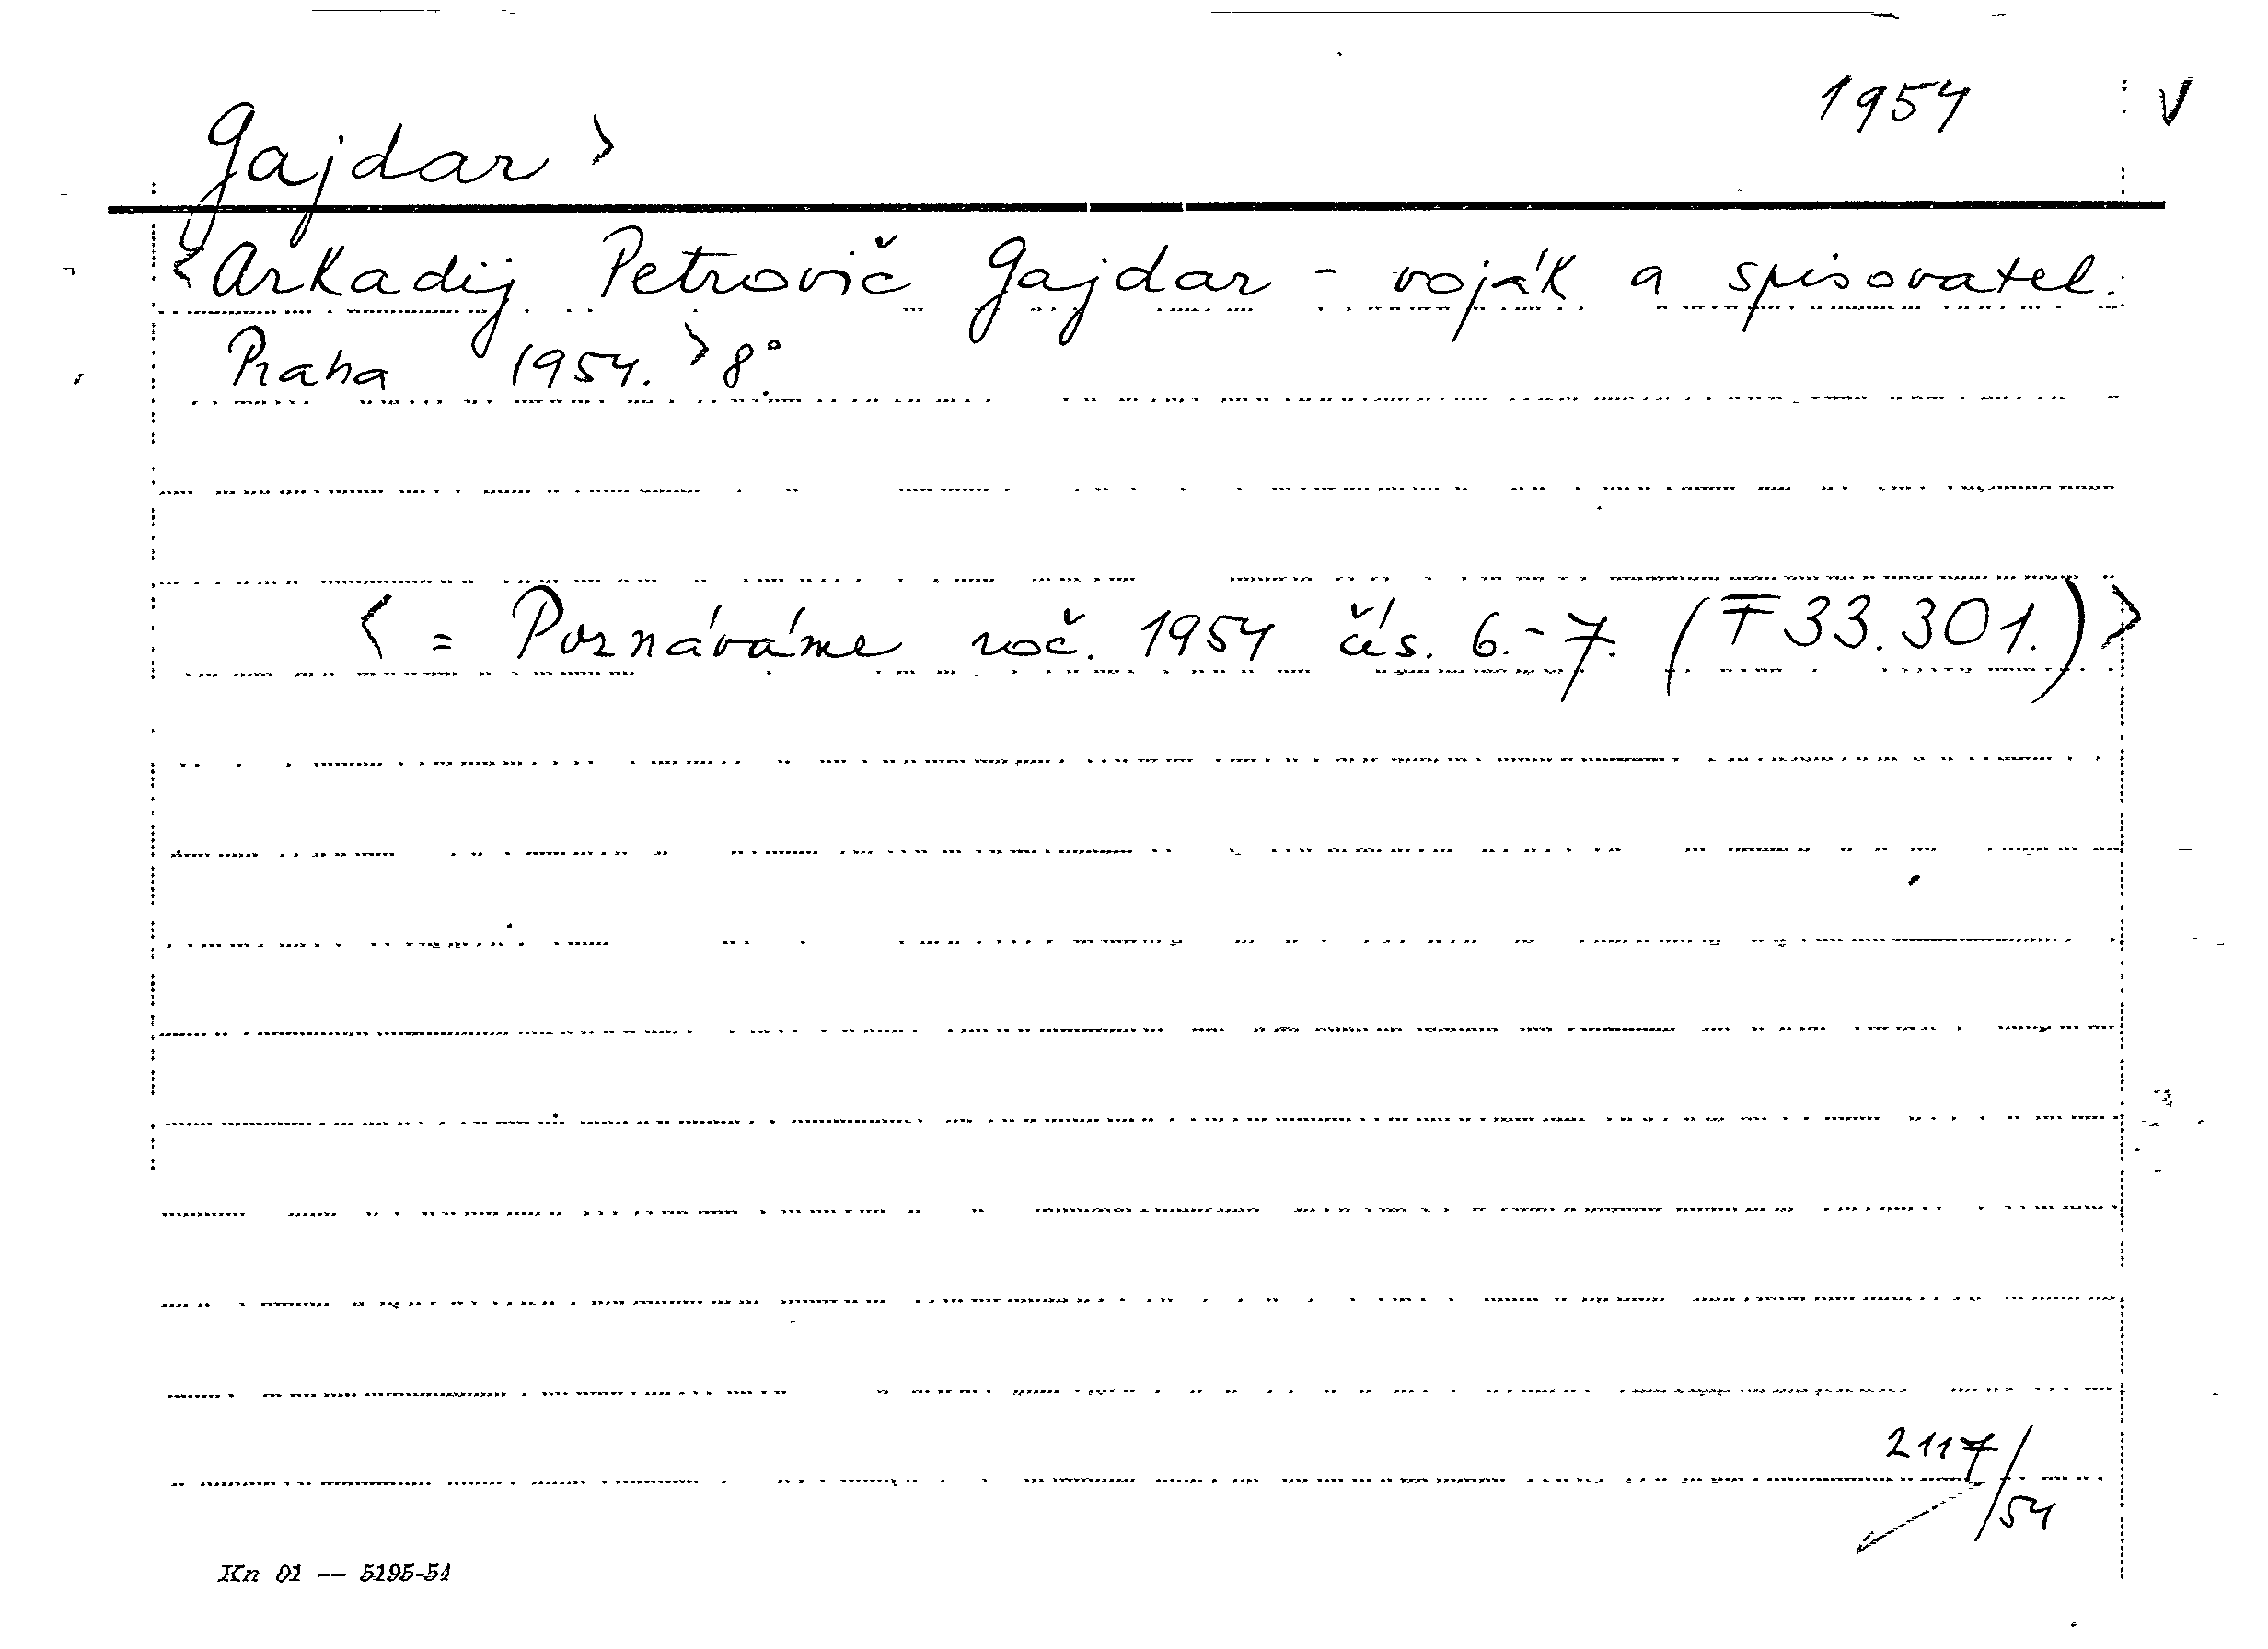 1954 V
Gajdar >
<Arkadij Petrovič Gajdar - voják a spisovatel.
Praha 1954. > 8°.
< = Poznáváme roč. 1954 čís. 6.-7. (F 33.301.) >
2117/54
Kn 01 — 5195-54